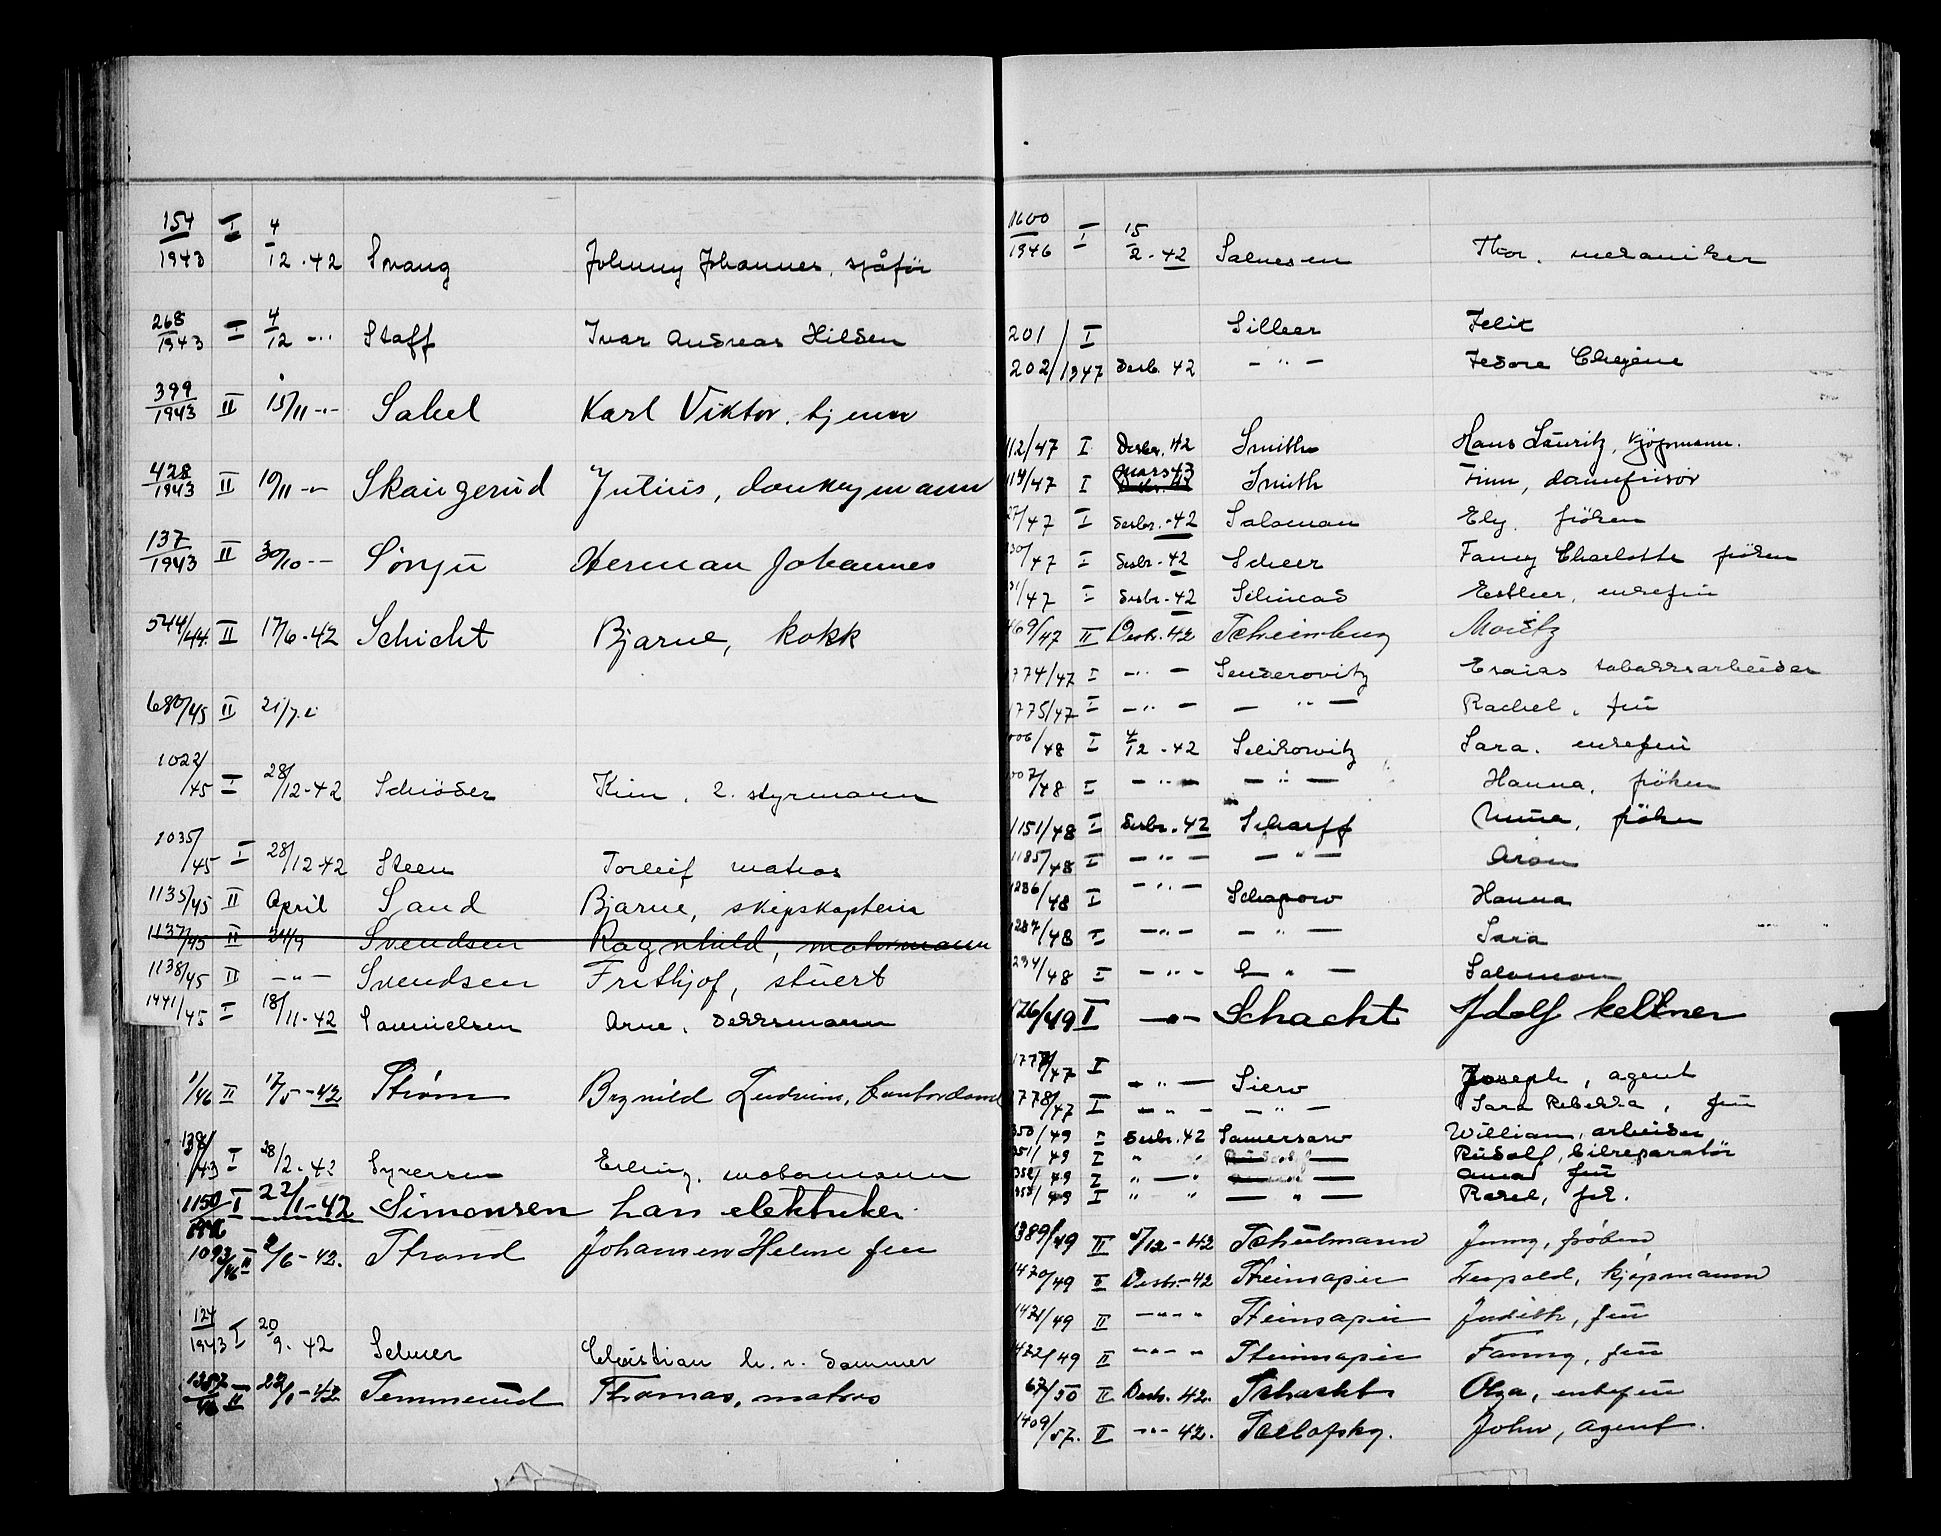 154/1943 I 4/12-42 Svang Johnny Johannes, sjåför
268/1943 I 4/12 -"- Staff Ivar Andreas Hilsen
399/1943 II 15/11 -"- Sabel Karl Viktor
428/1943 II 10/11 -"- Skaugerud Julius, donkeymann
137/1943 II 30/10 -- Herman Johannes
544/44. II 17/6-42 Schicht Bjarne, kokk
680/45 II 21/7
1022/45 I 28/12-42 Schröder Kim, 2. styrmann
1035/45 I 28/12-42 Steen Torleif matros
1135/45 II April Sand Bjarne, skipskaptein
1137/45 II Svendsen Ragnhild, motormann
1138/45 II -"- Svendsen Frithjof, stuert
1441/45 I 18/11-42 Samuelsen Arne, dekksmann
1/46 II 17/5-42 Strøm Brynhild
I 28/2-42 Syversen Erling, motormann
1150 I 22/1-42 Simonsen hans elektriker
1093/46 II 2/6-42. Strand Johansen Helene fru
124/1943 I 20/9.42 Selmer Christian
II Thomas, matros
1600/1946 I 15/2-42 Salvesen Thor, mekaniker
201/ I Silber Felix
202/1947 Desb. 42 -"-
112/47 I Desbr. 42 Smith Hans Lauritz, kjöpmann.
114/47 I Mars 43 Smith Finn, damefrisör
27/47 I Desbr.-42 Saloman Ely, fröken
30/47 I Desbr-42 Scheer Fanny Charlotte fröken
31/47 I Desbr-42 Esther, enkefru
469/47 II Desb. 42 Moritz
1774/47 I -"- Senderovitz Esaias tobakksarbeider
1775/47 I -"- -"- Rachel, fru
1006/48 I 4/12-42 Selikowitz Sara, enkefru
1007/48 I -"- -"- Hanna, fröken
1151/48 I Desbr.42 Scharff fröken
1185/48 I -"- -"- Aron
1286/48 I -"- Schapow Hanna
1287/48 I -"- -"- Sara
294/48 I -"- -"- Salomon
526/49 I -"- Schacht Adolf kellner
1777/47 I -"- Siew Joseph, agent
1778/47 I -"- -"- Sara Rebekka, fru
350/49 I Desbr.42 Scmersaw William, arbeider
351/49 I " " Rudolf, bilreparatör
352/49 I " - " fru
353/49 I " " -"-
1389/49 II 5/12-42 Schulmann Jenny, fröken
1420/49 II Desb.-42 Steinsapir Leopold, kjöpmann
1421/49 II -"- " Steinsapir Judith, fru
1422/49 II -"- " Steinsapir Fanny, fru
67/50 II Desb. 42. Schacht Olga, enkefru
1409/57. II -"- 42. John, agent.